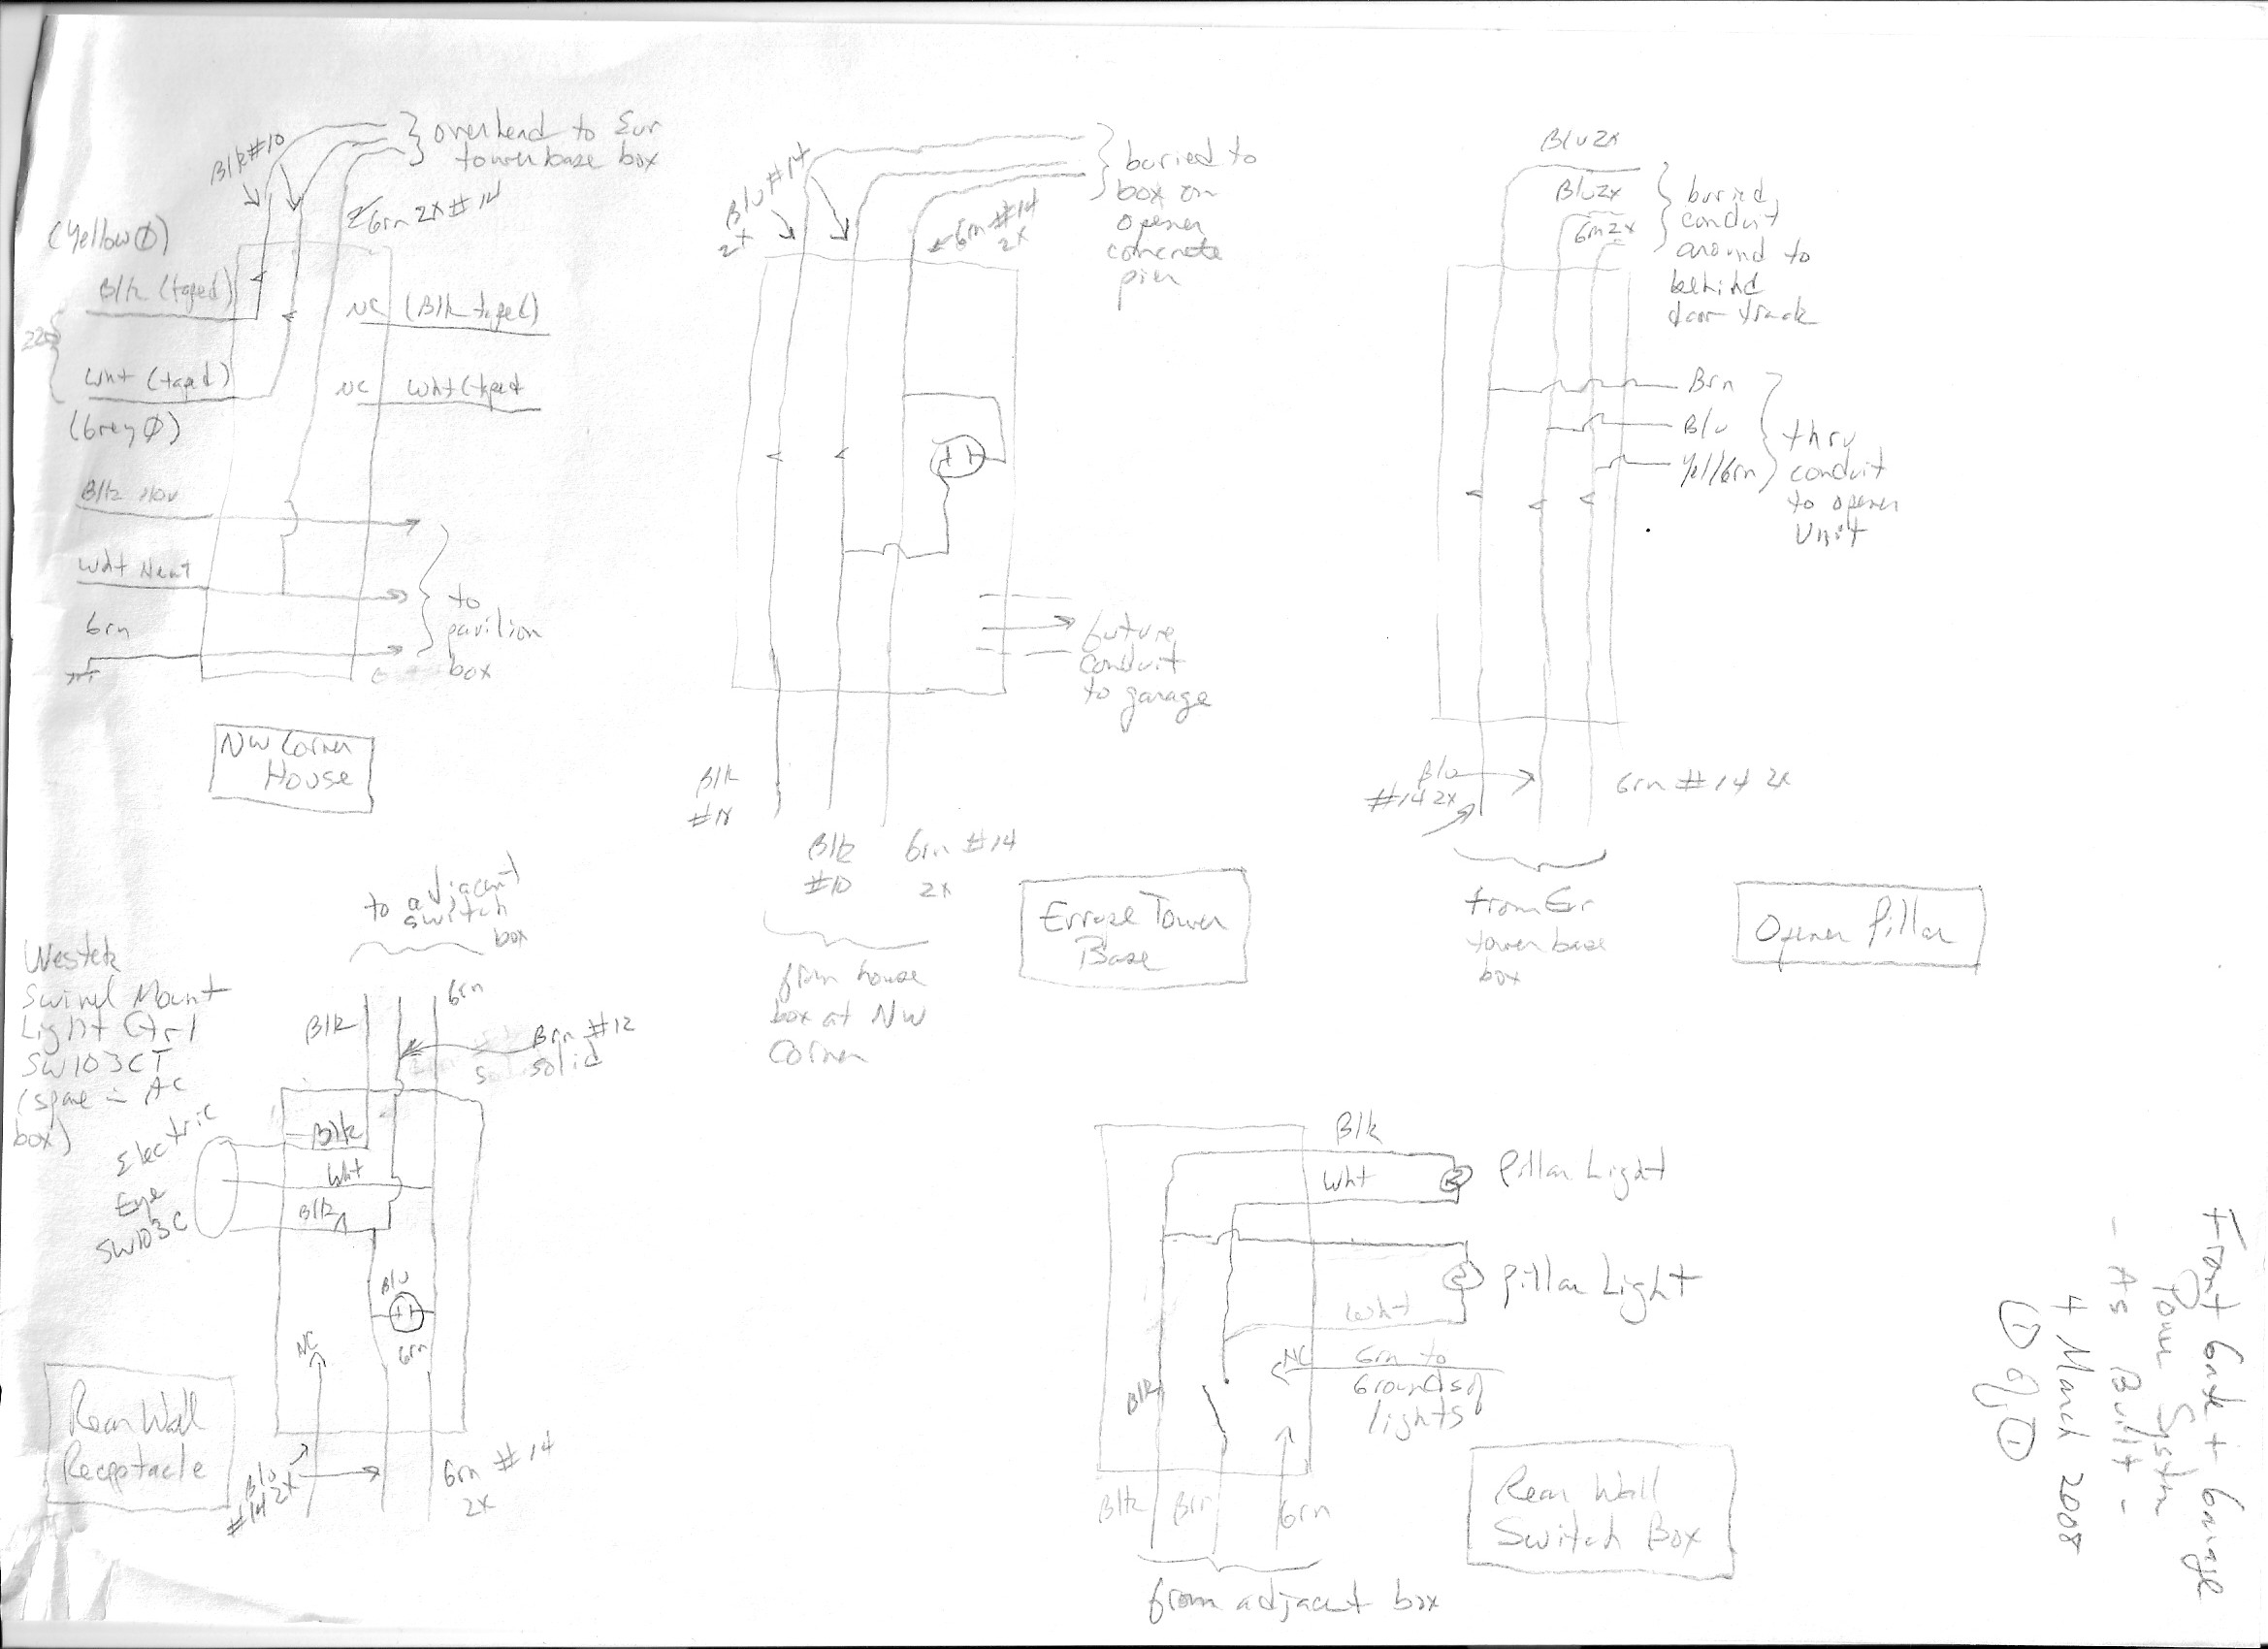 Blk #10
} overhead to Eur
tower base box
Grn 2x #14
(Yellow Ø)
Blk (taped)
NC (Blk taped)
220
Wht (taped)
NC Wht (taped
(Grey Ø)
Blk 110v
Wht Neut
Grn
to
pavilion
box
NW Corner
House
Blu #14
2x
Grn #14
2x
buried to
box on
opener
concrete
pier
future
conduit
to garage
Blk
Blk
#10
Grn #14
2x
from house
box at NW
Corner
Tower
Base
Blu 2x
Blu 2x
Grn 2x
buried
conduit
around to
behind
door track
Brn
Blu
Yel/Grn
thru
conduit
to opener
Unit
Blu
#14 2x
Grn #14 2x
from Eur
tower base
box
Opener Pillar
Westek
Swivel Mount
Light Ctrl
SW103CT
(spare in AC
box)
Electric
Eye
SW103C
to adjacent
switch
box
Blk
Grn
Brn #12
solid
Blk
Wht
Blk
Blu
Grn
NC
Blu
#14 2x
Grn #14
2x
Rear Wall
Receptacle
Blk
Wht
Pillar Light
Pillar Light
Wht
NC
Grn to
Grounds of
lights
Blk
Blk
Brn
Grn
from adjacent box
Rear Wall
Switch Box
Front Gate + Garage
Power System
- As Built -
4 March 2008